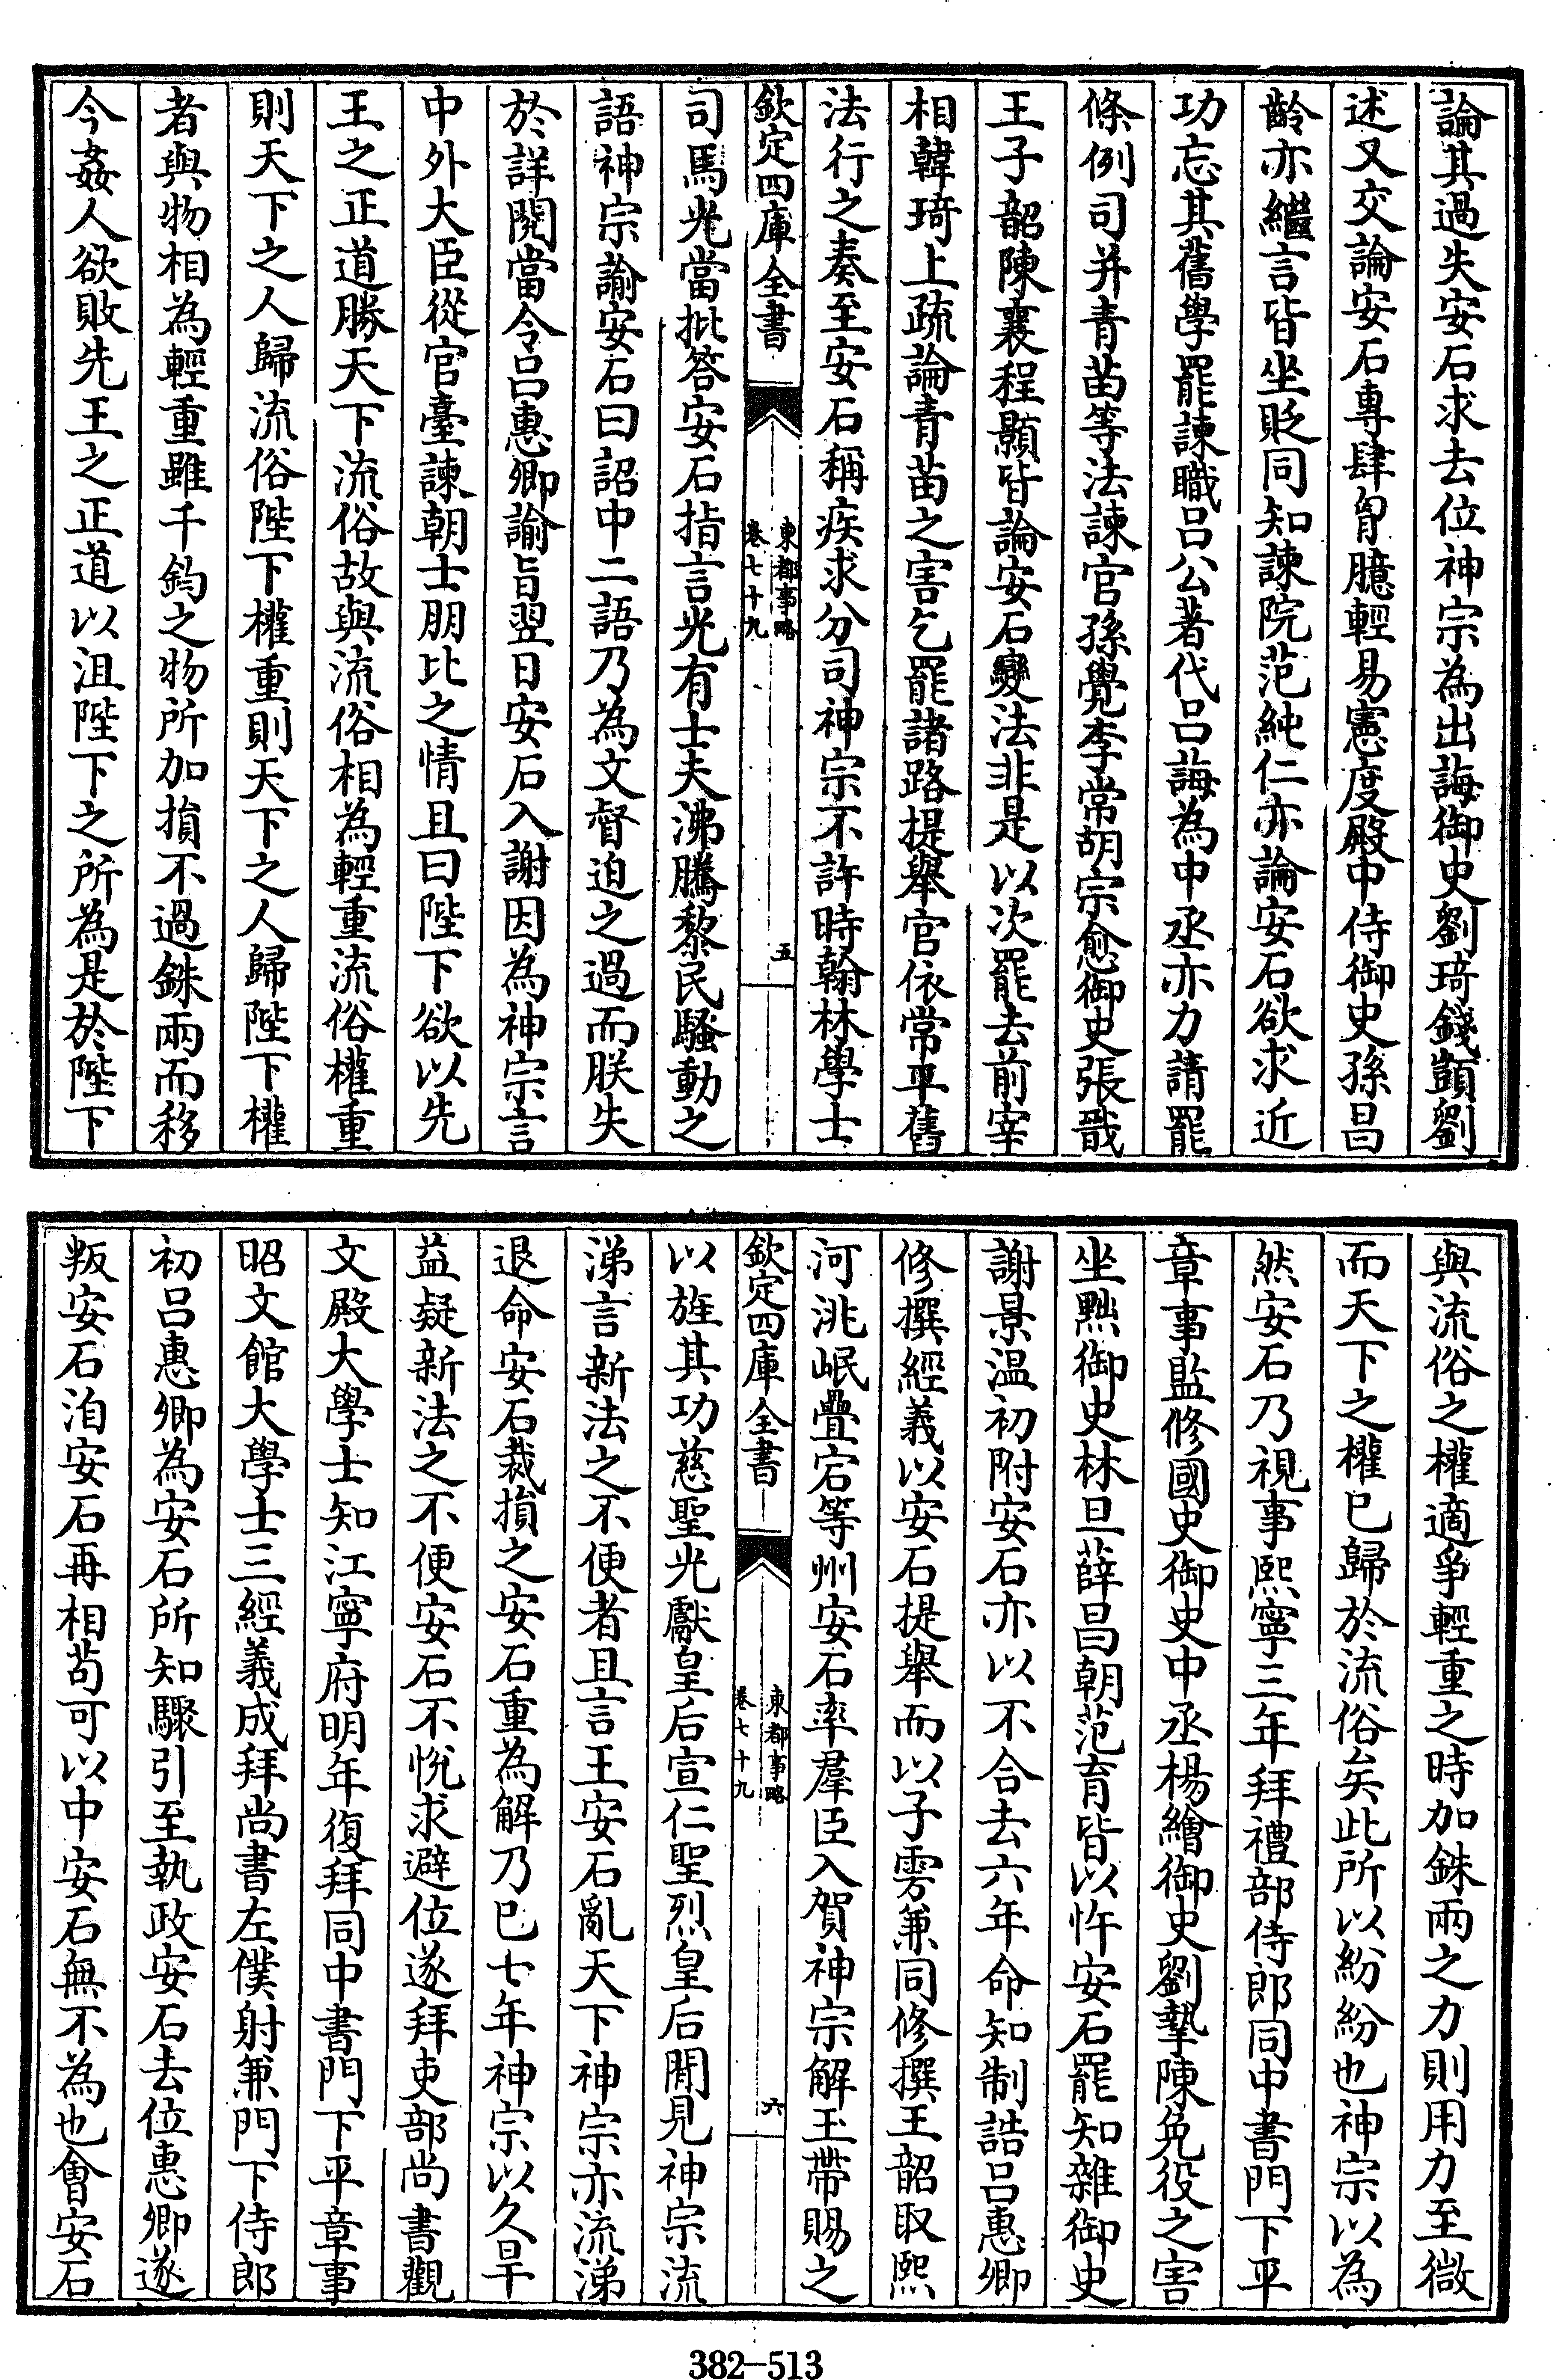 論其過失安石求去位神宗為出誨御史劉琦錢顗劉
述又交論安石專肆胷臆輕易憲度殿中侍御史孫昌
齡亦繼言皆坐貶同知諫院范純仁亦論安石欲求近
功忘其舊學罷諫職呂公著代呂誨為中丞亦力請罷
條例司并青苗等法諫官孫覺李常胡宗愈御史張戩
王子韶陳襄程顥皆論安石變法非是以次罷去前宰
相韓琦上疏論青苗之害乞罷諸路提舉官依常平舊
法行之奏至安石稱疾求分司神宗不許時翰林學士
欽定四庫全書
東都事略
卷七十九
五
司馬光當批答安石指言光有士夫沸騰黎民騷動之
語神宗諭安石曰詔中二語乃為文督迫之過而朕失
於詳閱當令呂惠卿諭旨翌日安石入謝因為神宗言
中外大臣從官臺諫朝士朋比之情且曰陛下欲以先
王之正道勝天下流俗故與流俗相為輕重流俗權重
則天下之人歸流俗陛下權重則天下之人歸陛下權
者與物相為輕重雖千鈞之物所加損不過銖兩而移
今姦人欲敗先王之正道以沮陛下之所為是於陛下
與流俗之權適爭輕重之時加銖兩之力則用力至微
而天下之權已歸於流俗矣此所以紛紛也神宗以為
然安石乃視事熙寧三年拜禮部侍郎同中書門下平
章事監修國史御史中丞楊繪御史劉摯陳免役之害
坐黜御史林旦薛昌朝范育皆以忤安石罷知雜御史
謝景温初附安石亦以不合去六年命知制誥呂惠卿
修撰經義以安石提舉而以子雱兼同修撰王韶取熙
河洮岷疊宕等州安石率羣臣入賀神宗解玉帶賜之
欽定四庫全書
東都事略
卷七十九
六
以旌其功慈聖光獻皇后宣仁聖烈皇后閒見神宗流
涕言新法之不便者且言王安石亂天下神宗亦流涕
退命安石裁損之安石重為解乃已七年神宗以久旱
益疑新法之不便安石不悅求避位遂拜吏部尚書觀
文殿大學士知江寧府明年復拜同中書門下平章事
昭文館大學士三經義成拜尚書左僕射兼門下侍郎
初呂惠卿為安石所知驟引至執政安石去位惠卿遂
叛安石洎安石再相苟可以中安石無不為也會安石
382-513